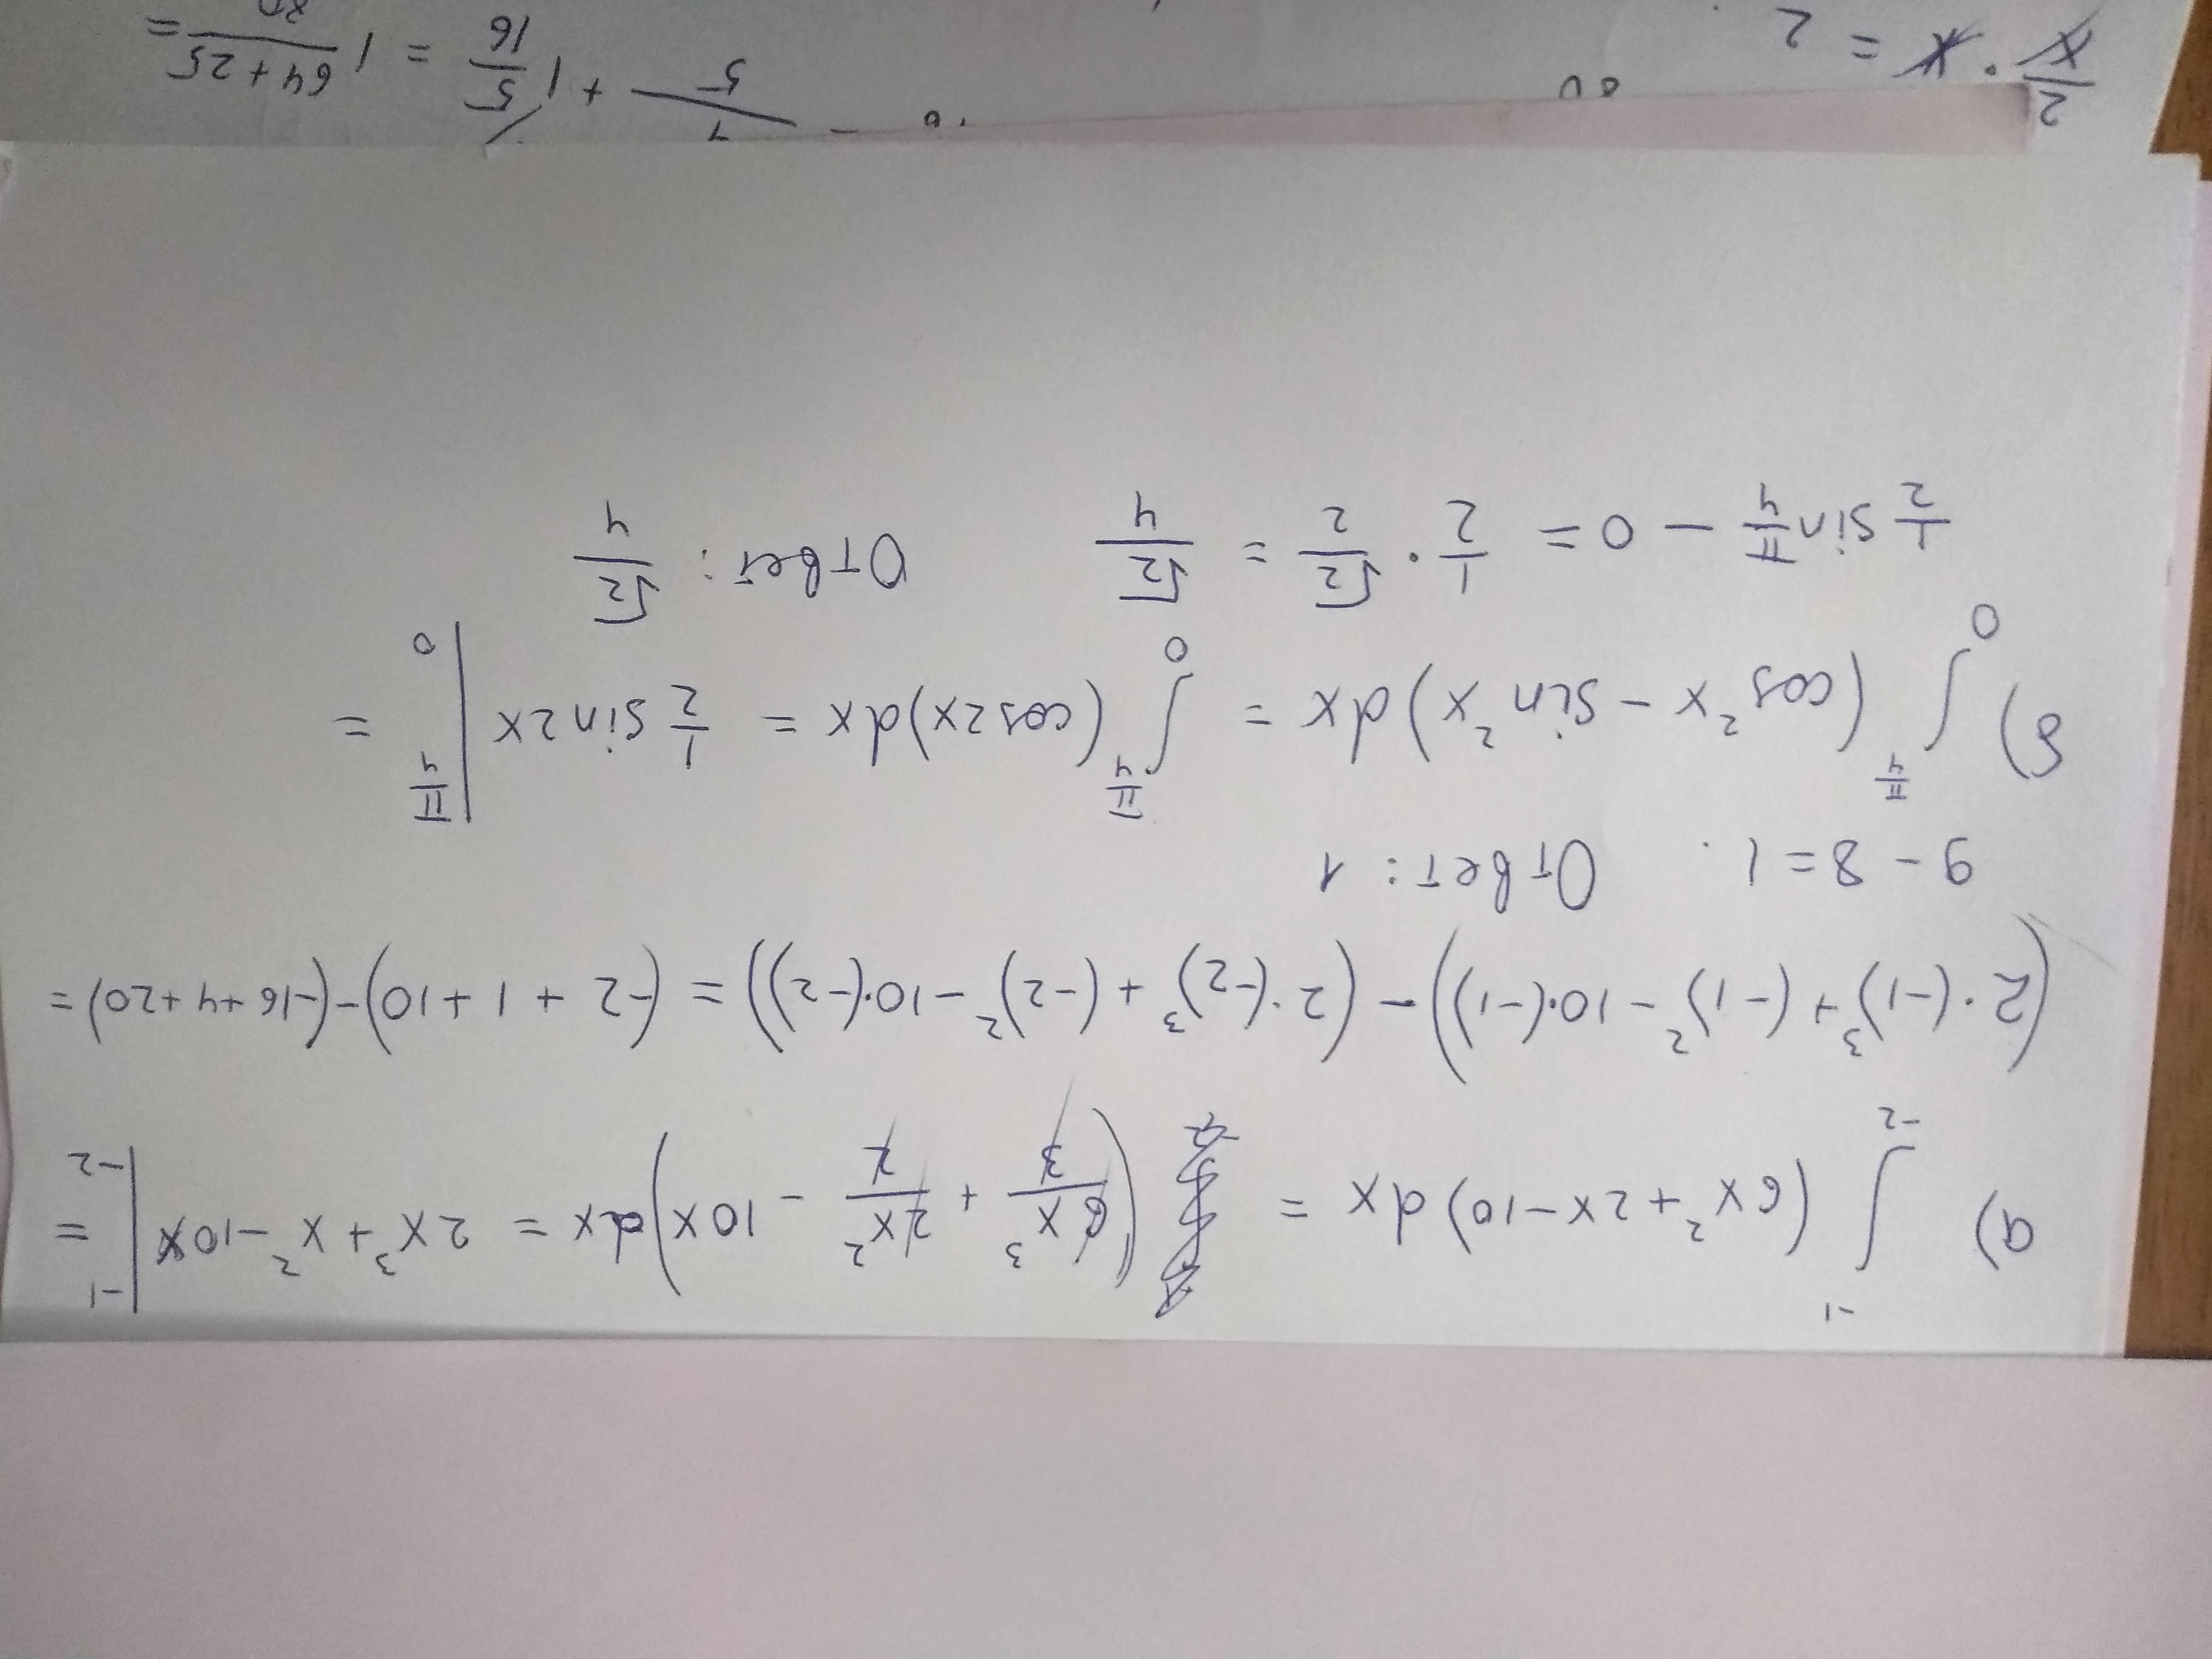 а) ∫₋₂⁻¹ (6x²+2x-10)dx = (6x³/3 + 2x²/2 - 10x) = 2x³+x²-10x |₋₂⁻¹ =
(2·(-1)³+(-1)²-10·(-1))-(2·(-2)³+(-2)²-10·(-2)) = (-2+1+10)-(-16+4+20)=
9-8=1. Ответ: 1
б) ∫₀^π/4 (cos²x-sin²x)dx = ∫₀^π/4 (cos2x)dx = 1/2 sin2x |₀^π/4 =
1/2 sin π/4 - 0 = 1/2 · √2/2 = √2/4 Ответ: √2/4
2/x · x = 2
5 + 1 5/16 = 1 64+25/80 =